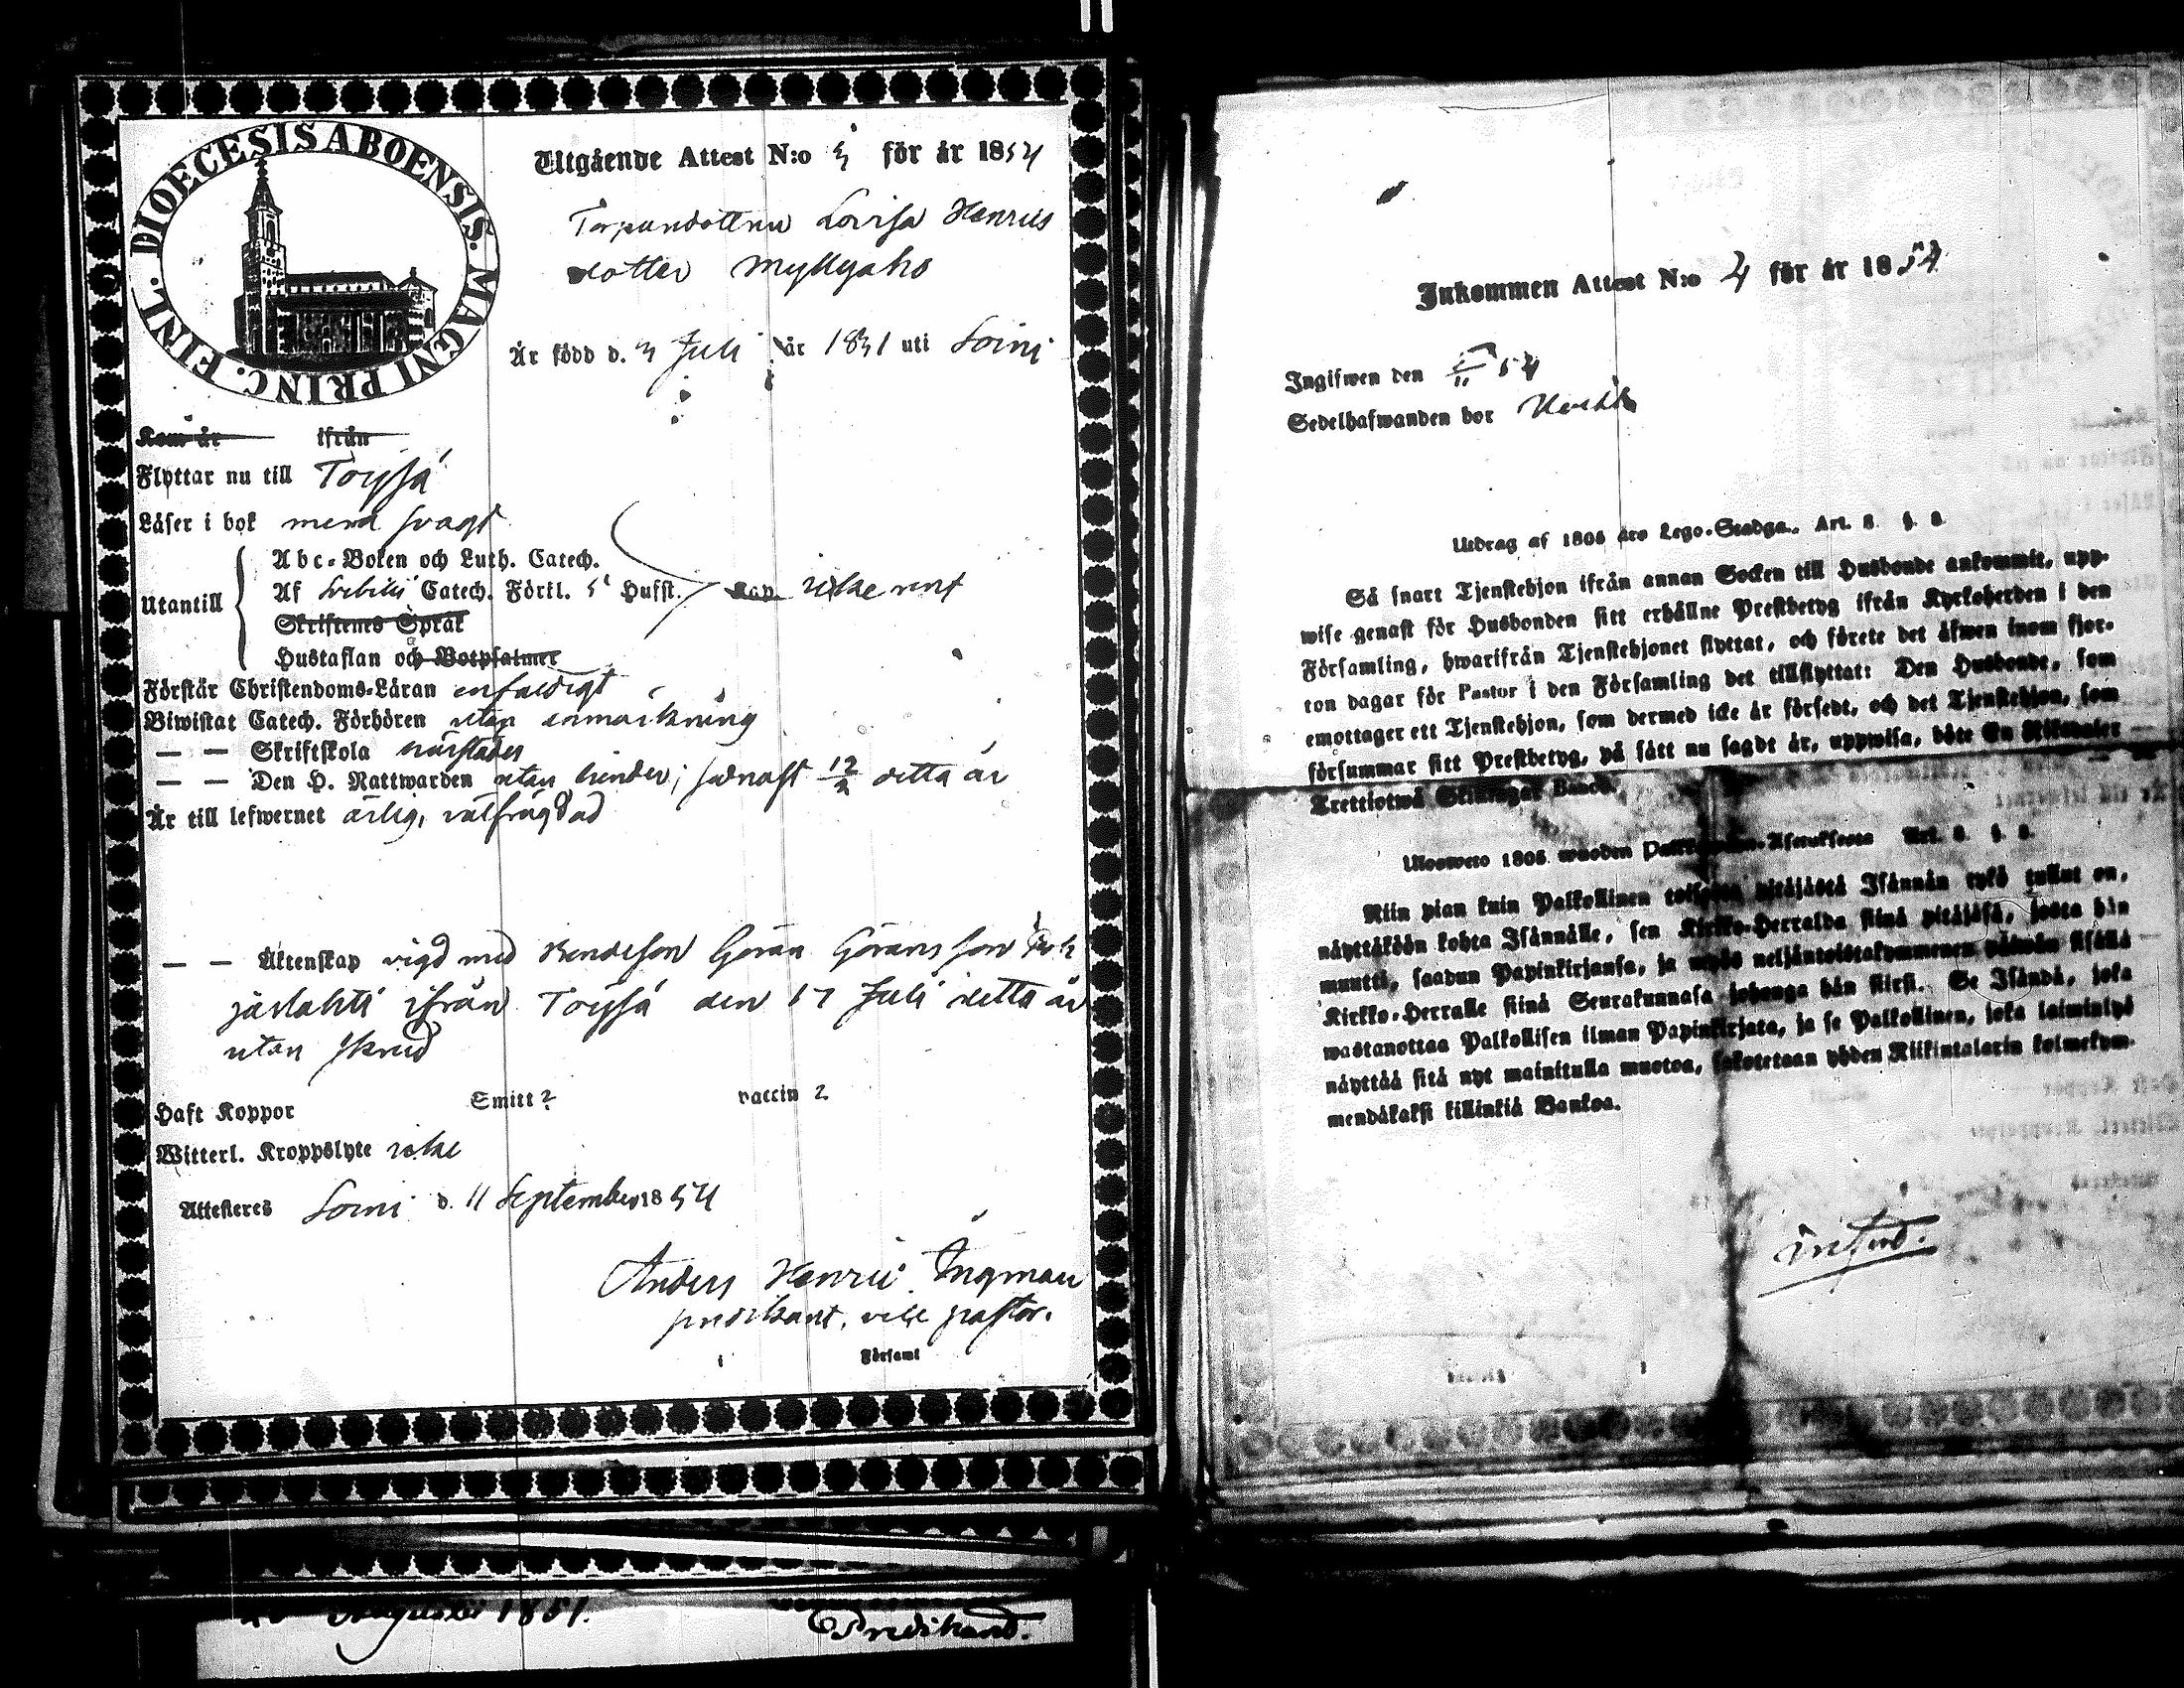 DIOECESIS ABOENSIS. MAGNI PRINC. FINL.
Utgående Attest N:o för år 1854
Torparedottren Lovisa Henrics
dotter Myllyaho
Är född d. 3 Juli år 1831 uti Soini
Kom år ifrån
Flyttar nu till Töysä
Läser i bok svagt
Utantill
Abc-Boken och Luth. Catech.
Af Svebilii Catech. Förkl. 5 Hufst. Kap. icke rent
Skriftens Språk
Hustaflan och Botpsalmer
Förstår Christendoms-Läran enfaldigt
Biwistat Catech. Förhören utan anmärkning
— — Skriftskola härstädes
— — Den H. Nattwarden utan hinder; sednast detta år
Är till lefwernet ärlig, välfrägdad
— — Äktenskap vigd med Bondeson Göran Göransson
järlahti ifrån Töysä den 17 Juli detta år
utan skrud
Haft Koppor Smitt? vaccin?
Witterl. Kroppslyte icke
Attesteras Soini d. 11 September 1854
Anders Henric Ingman
predikant, vice pastor.
i Församl
Augusti 1851. Predikand.
Inkommen Attest N:o 4 för år 1854
Ingifwen den 54
Sedelhafwanden bor
Utdrag af 1805 års Lego-Stadga. Art. 8. §. 8.
Så snart Tjenstehjon ifrån annan Socken till Husbonde ankommit, upp-
wise genast för Husbonden sitt erhållne Prestbetyg ifrån Kyrkoherden i den
Församling, hwarifrån Tjenstehjonet flyttat, och förete det äfwen inom fjor-
ton dagar för Pastor i den Församling det tillflyttat: Den Husbonde, som
emottager ett Tjenstehjon, som dermed icke är försedt, och det Tjenstehjon, som
försummar sitt Prestbetyg, på sätt nu sagdt är, uppwisa, böte En Riksdaler
Trettiotwå Skillingar Banco.
Ulosweto 1805 wuoden Art. 8. §. 8.
Niin pian kuin Palkollinen toisesta pitäjästä Isännän tykö tullut on,
näyttäköön kohta Isännälle, sen Kirkko-Herralda siinä pitäjäsä, josta hän
muutti, saadun Papinkirjansa, ja myös neljäntoistakymmenen päiwän sisällä
Kirkko-Herralle siinä Seurakunnasa johonga hän siirsi. Se Isändä, joka
wastanottaa Palkollisen ilman Papinkirjata, ja se Palkollinen, joka laiminlyö
näyttää sitä nyt mainitulla muotoa, sakotetaan yhden Riikintalarin kolmekym-
mendäkaksi killinkiä Bankoa.
Införd.